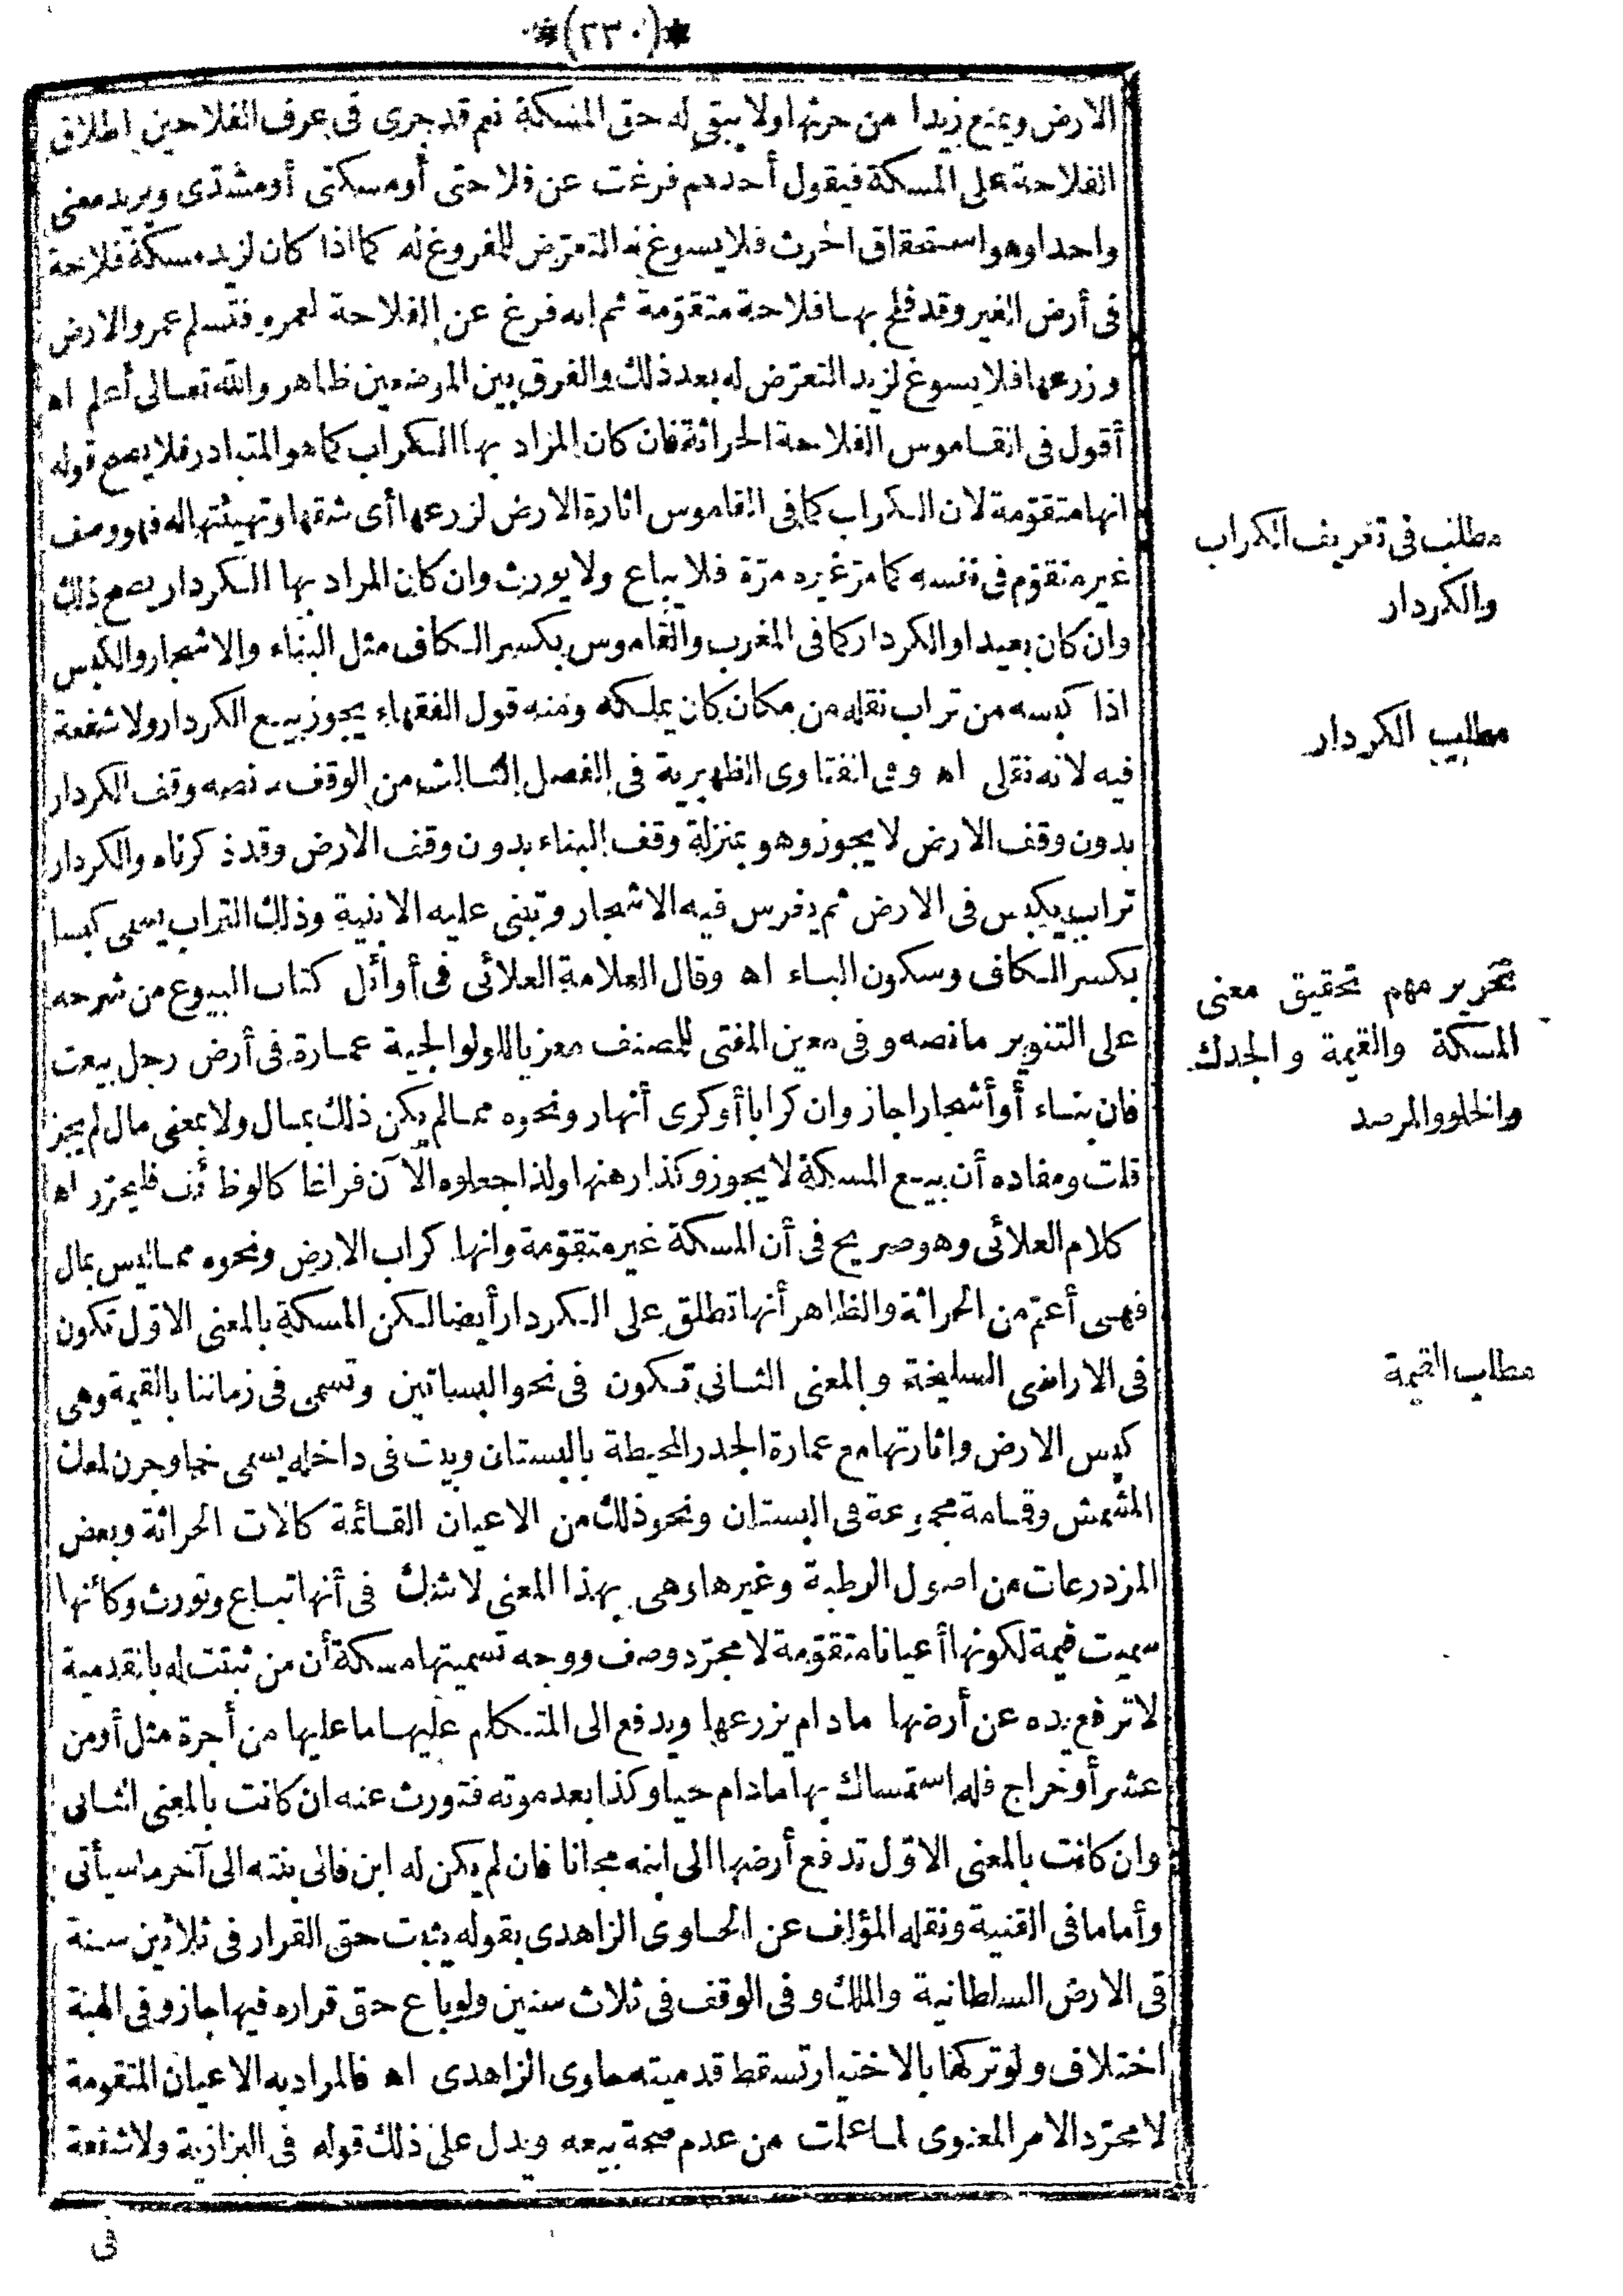 *(٢٣٠)*
الارض ويمنع زيدا من حرثها ولا يبقى له حق المسكة نعم قد جرى فى عرف الفلاحين اطلاق
الفلاحة على المسكة فيقول أحدهم فرغت عن فلاحتى أو مسكتى أو مشدى ويريد معنى
واحدا وهو استحقاق الحرث فلا يسوغ له التعرّض للمفروغ له كما اذا كان لزيد مسكة فلاحة
فى أرض الغير وقد فلح بها فلاحة متقوّمة ثم انه فرغ عن الفلاحة لعمرو فتسلم عمرو الارض
وزرعها فلا يسوغ لزيد التعرّض له بعد ذلك والفرق بين الموضعين ظاهر والله تعالى أعلم اه
أقول فى القاموس الفلاحة الحراثة فان كان المراد بها الكراب كما هو المتبادر فلا يصح قوله
انها متقوّمة لان الكراب كما فى القاموس اثارة الارض لزرعها أى شقها وتهيئتها له فهو وصف
غير متقوّم فى نفسه كما مرّ غير مرّة فلا يباع ولا يورث وان كان المراد بها الكردار يصح ذلك
وان كان بعيدا والكردار كما فى المغرب والقاموس بكسر الكاف مثل البناء والاشجار والكبس
اذا كبسه من تراب نقله من مكان كان يملكه ومنه قول الفقهاء يجوز بيع الكردار ولا شفعة
فيه لانه نقلى اه وفى الفتاوى الظهيرية فى الفصل الثالث من الوقف ما نصه وقف الكردار
بدون وقف الارض لا يجوز وهو بمنزلة وقف البناء بدون وقف الارض وقد ذكرناه والكردار
تراب يكبس فى الارض ثم يغرس فيه الاشجار وتبنى عليه الابنية وذلك التراب يسمى كبسا
بكسر الكاف وسكون الباء اه وقال العلامة العلائى فى أوائل كتاب البيوع من شرحه
على التنوير ما نصه وفى معين المفتى للمصنف معزيا للولوالجية عمارة فى أرض رجل بيعت
فان بناء أو أشجارا جاز وان كرابا أو كرى أنهار ونحوه مما لم يكن ذلك بمال ولا بمعنى مال لم يجز
قلت ومفاده أن بيع المسكة لا يجوز وكذا رهنها ولذا جعلوه الآن فراغا كالوظائف فليحرّر اه
كلام العلائى وهو صريح فى أن المسكة غير متقوّمة وانها كراب الارض ونحوه مما ليس بمال
فهى أعمّ من الحراثة والظاهر أنها تطلق على الكردار أيضا لكن المسكة بالمعنى الاوّل تكون
فى الاراضى السليخة وبالمعنى الثانى تكون فى نحو البساتين وتسمى فى زماننا بالقيمة وهى
كبس الارض واثارتها مع عمارة الجدر المحيطة بالبستان وبيت فى داخله يسمى خما وجرن لمعك
المشمش وقمامة مجموعة فى البستان ونحو ذلك من الاعيان القائمة كآلات الحراثة وبعض
المزدرعات من اصول الرطبة وغيرها وهى بهذا المعنى لا شك فى أنها تباع وتورث وكأنها
سميت قيمة لكونها أعيانا متقوّمة لا مجرّد وصف ووجه تسميتها مسكة أن من ثبتت له بالقدمية
لا ترفع يده عن أرضها مادام يزرعها ويدفع الى المتكلم عليها ما عليها من أجرة مثل أو من
عشر أو خراج فله استمساك بها مادام حيا وكذا بعد موته فتورث عنه ان كانت بالمعنى الثانى
وان كانت بالمعنى الاوّل تدفع أرضها الى ابنه مجانا فان لم يكن له ابن فالى بنته الى آخر ما سيأتى
وأما ما فى القنية ونقله المؤلف عن الحاوى الزاهدى بقوله يثبت حق القرار فى ثلاثين سنة
فى الارض السلطانية والملك وفى الوقف فى ثلاث سنين ولو باع حق قراره فيها جاز وفى الهبة
اختلاف ولو تركها بالاختيار تسقط قدميته حاوى الزاهدى اه فالمراد به الاعيان المتقومة
لا مجرّد الامر المعنوى لما علمت من عدم صحة بيعه ويدل على ذلك قوله فى البزازية ولا شفعة
فى
مطلب فى تعريف الكراب
والكردار
مطلب الكردار
تحرير مهم تحقيق معنى
المسكة والقيمة والجدك
والخلو والمرصد
مطلب القيمة